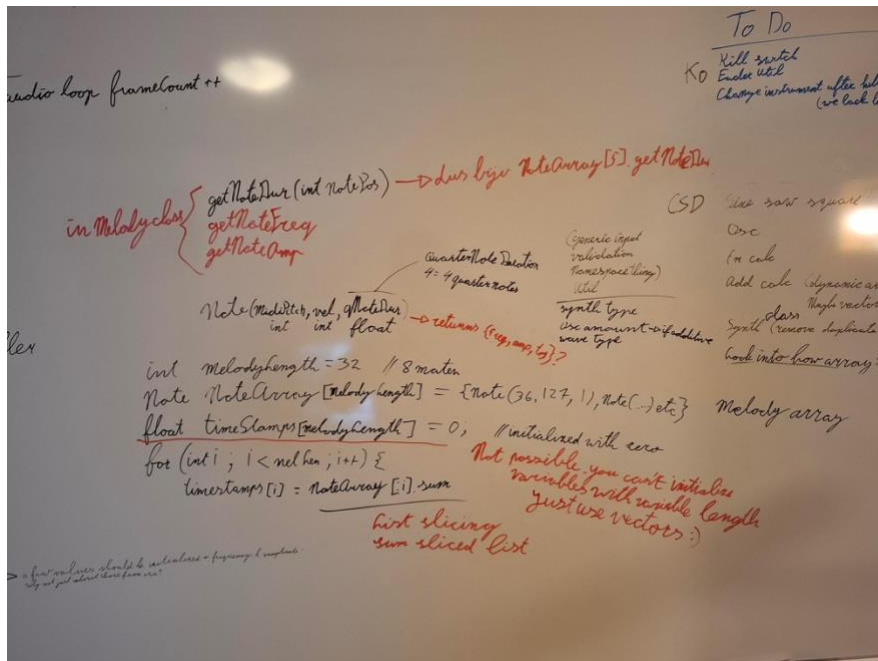 audio loop frameCount ++
To Do
KO
Kill switch
Ender util
Change instrument after
(we lack
in Melodyclass
getNoteDur (int notePos) → dus bijv NoteArray[5].getNoteDur
getNoteFreq
getNoteAmp
CSD
saw square
Osc
calc
Add calc (dynamic
vector
class
Synth (remove duplicate
Look into how array
QuarterNoteDuration
4 = 4 quarternotes
(generic input
validation
Namespace thing)
Util
synth type
osc amount → if additive
wave type
Note(midiPitch, vel, qNoteDur)
int int float
→ returns {freq, amp, }?
ler
int melodyLength = 32 // 8 maten
Note NoteArray[melodyLength] = {Note(36, 127, 1), Note(...) etc}
Melody array
float timeStamps[melodyLength] = 0; // initialized with zero
for (int i ; i < melLen ; i++) {
timestamps[i] = NoteArray[:i].sum
Not possible. you can't initialize
variables with variable length
Just use vectors :)
List slicing
sum sliced list
a few values should be initialized